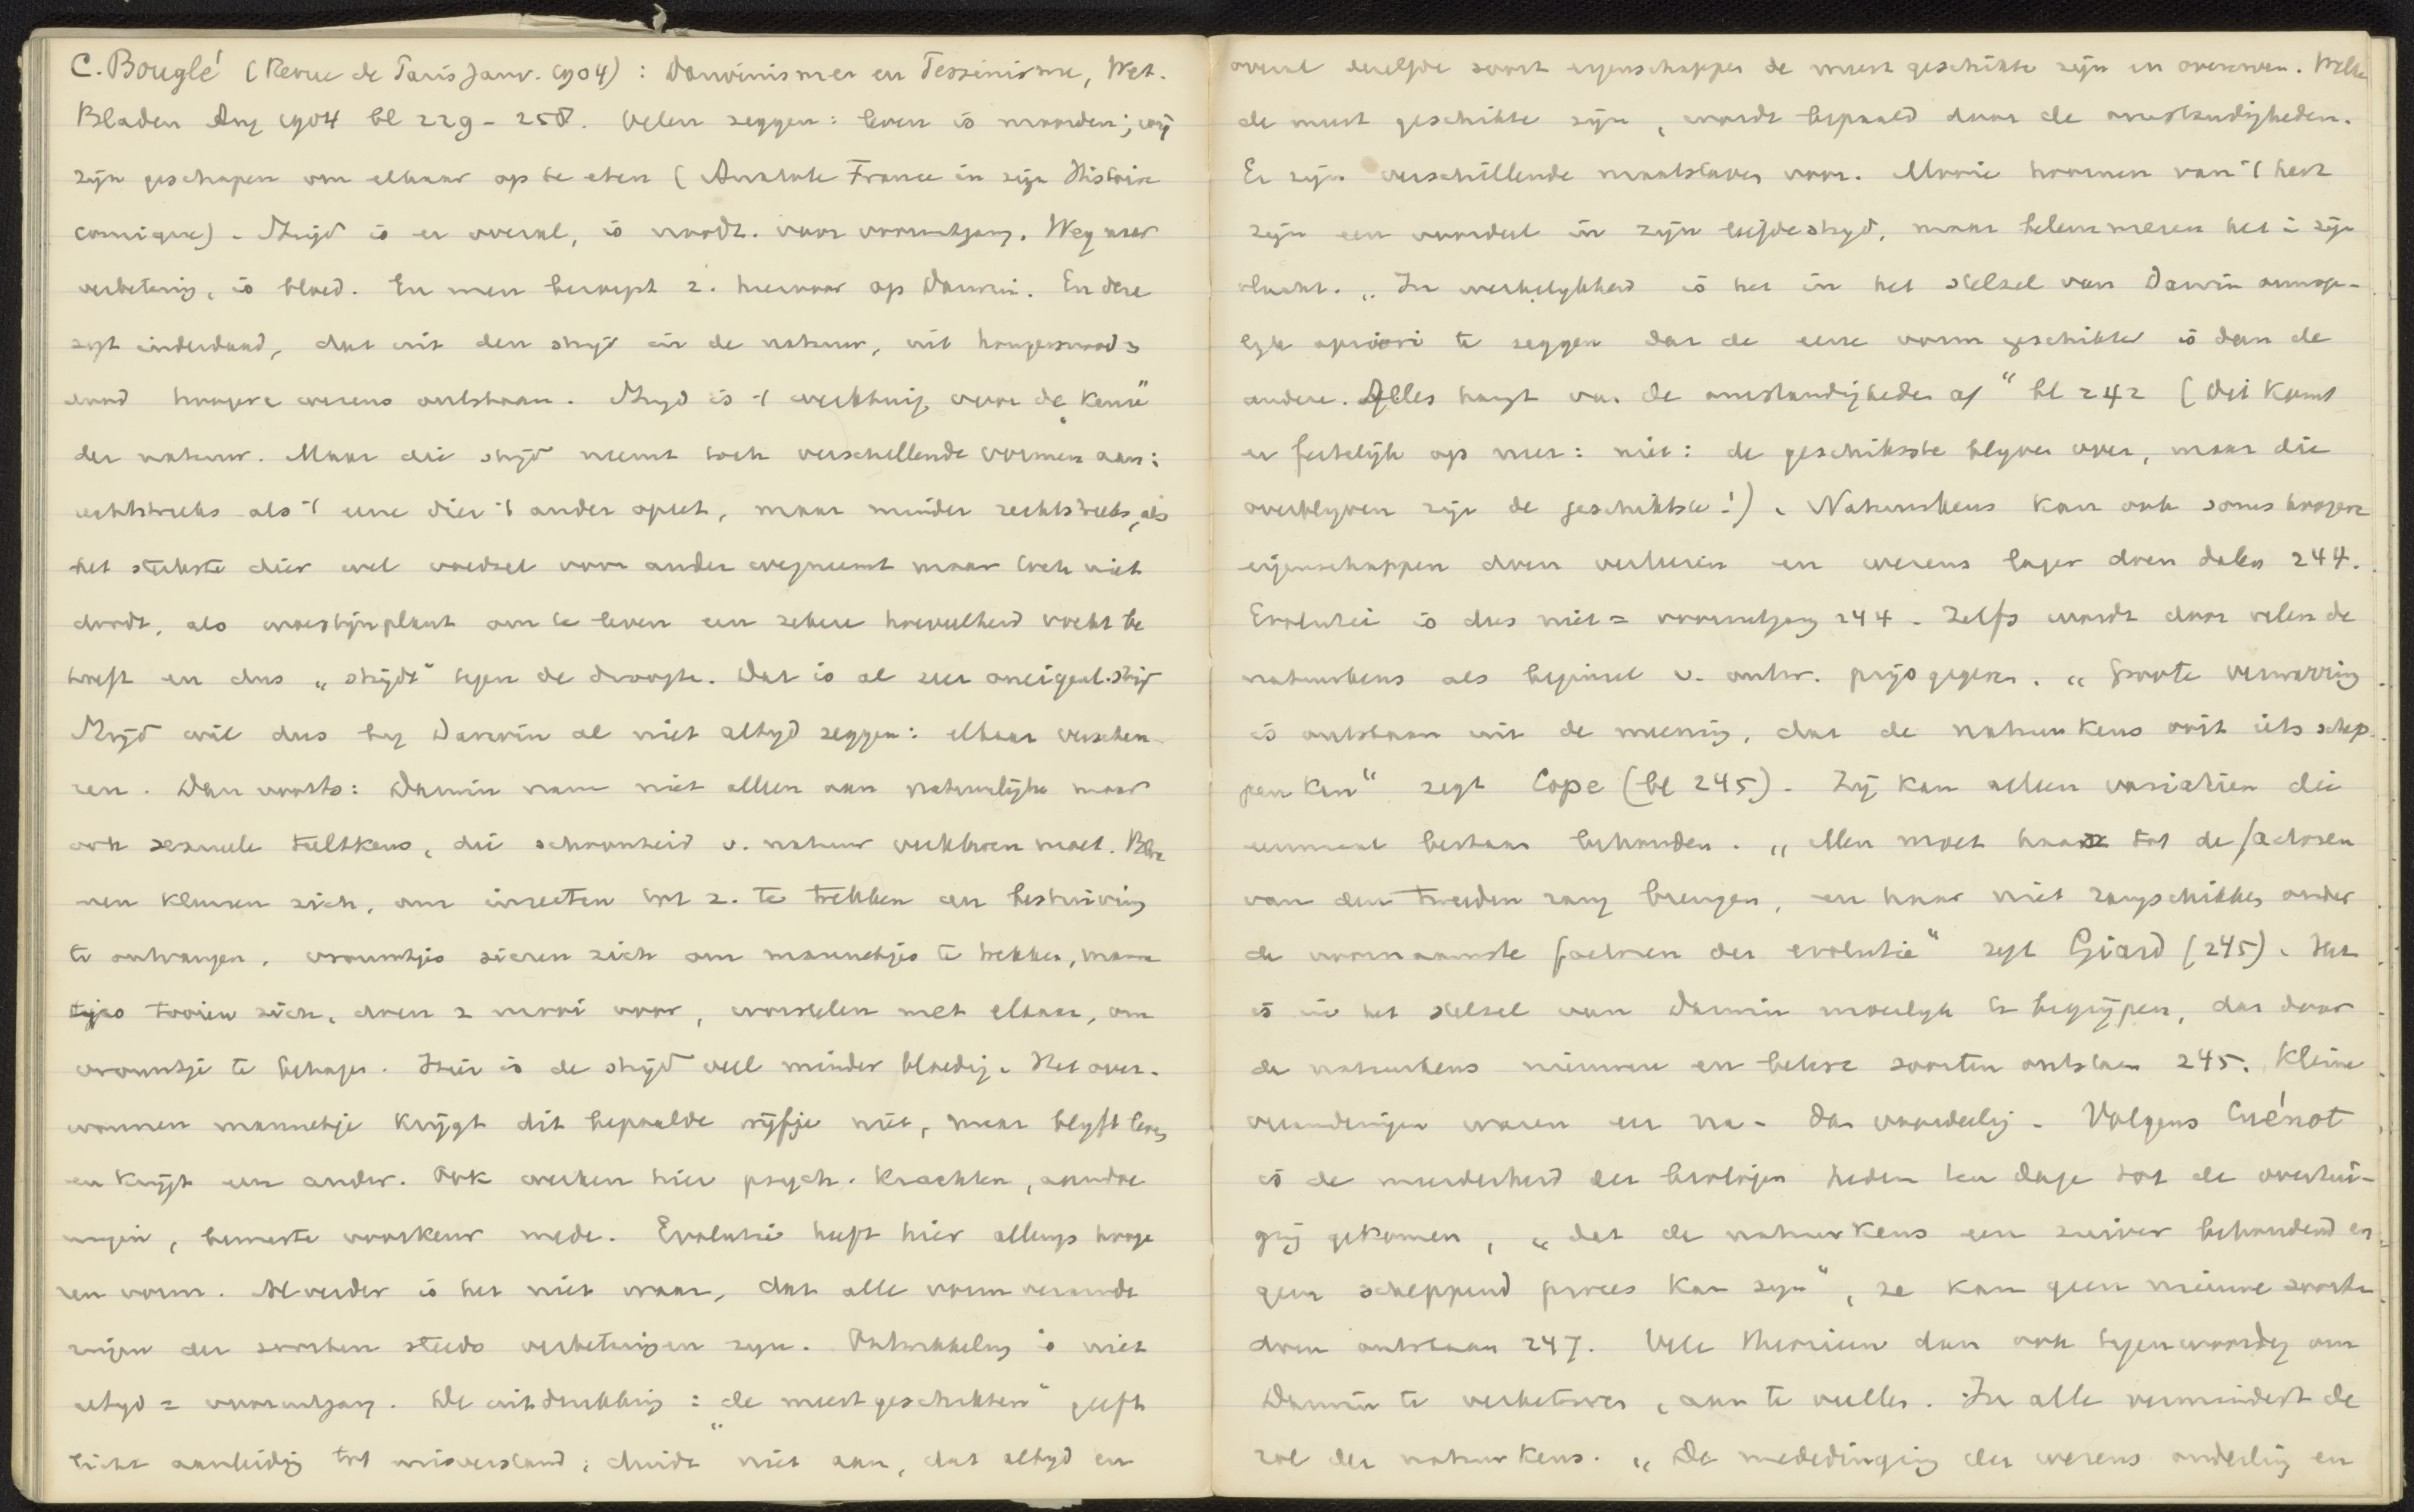 C. Bouglé (Revue de Paris Janv. 1904): Darwinisme en Pessimisme, Wet.
Bladen Aug 1904 bl 229 - 258. Velen zeggen: leven is moorden; wij
zijn geschapen om elkaar op te eten (Anatole France in zijn Histoire
comique). Strijd is er overal, is noodz. voor vooruitgang. Weg naar
verbetering, is bloed. En men beroept z. hiervoor op Darwin. En deze
zegt inderdaad, dat uit den strijd in de natuur, uit hongersnood &
dood hoogere wezens ontstaan. Strijd is 't werktuig voor de „Keuze"
der natuur. Maar die strijd neemt toch verschillende vormen aan:
rechtstreeks als 't eene dier 't ander opeet, maar minder rechtstreeks, als
het sterkste dier wel voedsel voor ander wegneemt maar toch niet
doodt, als woestijnplant om te leven een zekere hoeveelheid vocht be
hoeft en dus „strijdt" tegen de droogte. Dat is al zeer oneigenl. strijd
Strijd wil dus bij Darwin al niet altijd zeggen: elkaar verscheu-
ren. Dan voorts: Darwin nam niet alleen aan natuurlijke maar
ook sexueele teeltkeus, die schoonheid v. natuur verklaren moet. Bloe
men kleuren zich, om insecten tot z. te trekken en bestuiving
te ontvangen, vrouwtjes sieren zich om mannetjes te trekken, manne
tjes tooien zich, doen z mooi voor, worstelen met elkaar, om
vrouwtje te behagen. Hier is de strijd veel minder bloedig. Het over-
wonnen mannetje krijgt dit bepaalde wijfje niet, maar blijft leven
en krijgt een ander. Ook werken hier psych. krachten, aandoe
ningen, bewuste voorkeur mede. Evolutie heeft hier allengs hooge
ren vorm. Al verder is het niet waar, dat alle vormverande
ringen der soorten steeds verbeteringen zijn. Ontwikkeling is niet
altijd = vooruitgang. De uitdrukking: „de meest geschikten" geeft
licht aanleiding tot misverstand; duidt niet aan, dat altijd en
overal dezelfde soort eigenschappen de meest geschikte zijn en overleven. Welke
de meest geschikte zijn, wordt bepaald door de omstandigheden.
Er zijn verschillende maatstaven voor. Mooie hoornen van 't hert
zijn een voordeel in zijn liefdestrijd, maar belemmeren het in zijn
vlucht. „In werkelijkheid is het in het stelsel van Darwin onmoge-
lijk apriori te zeggen dat de eene vorm geschikter is dan de
andere. Alles hangt van de omstandigheden af" bl 242 (Dit komt
er feitelijk op neer: niet: de geschikste blijven over, maar die
overblijven zijn de geschiktste!). Natuurkeus kan ook soms hoogere
eigenschappen doen verliezen en wezens lager doen dalen 244.
Evolutie is dus niet = vooruitgang 244. Zelfs wordt door velen de
natuurkeus als beginsel v. ontw. prijsgegeven. „Groote verwarring
is ontstaan uit de meening, dat de natuurkeus ooit iets schep-
pen kan" zegt Cope (bl 245). Zij kan alleen variatiën die
eenmaal bestaan behouden. „Men moet haar tot de factoren
van den tweeden rang brengen, en haar niet rangschikken onder
de voornaamste factoren der evolutie" zegt Giard (245). Het
is in het stelsel van Darwin moeilijk te begrijpen, dat door
de natuurkeus nieuwe en betere soorten ontstaan 245. Kleine
veranderingen waren eer na- dan voordeelig. Volgens Cuénot
is de meerderheid der biologen heden ten dage tot de overtui-
ging gekomen, „dat de natuurkeus een zuiver behoudend en
geen scheppend proces kan zijn", ze kan geen nieuwe soorten
doen ontstaan 247. Vele theorieën dan ook tegenwoordig om
Darwin te verbeteren, aan te vullen. In alle vermindert de
rol der natuurkeus. „De mededinging der wezens onderling en